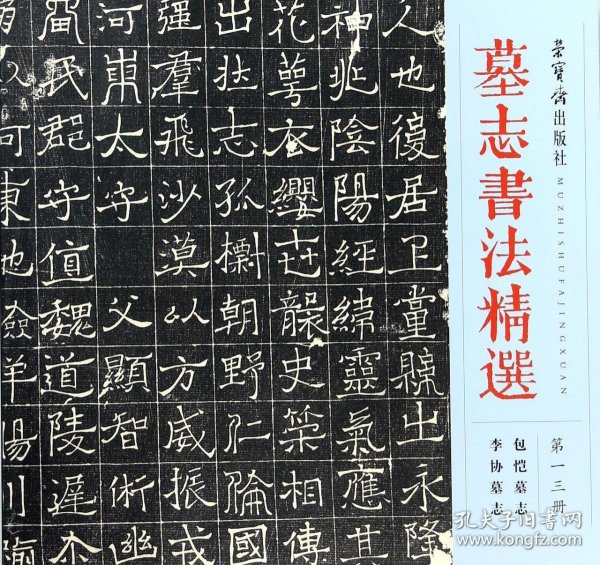 荣宝斋出版社
MUZHISHUFAJINGXUAN
墓志書法精選
第一三册
包恺墓志
李协墓志
人也復居卫黨縣出永隆
神北陰陽經緯靈氣應其
花萼衣纓世躁史築相傳
出壯志孤摽朝野仁倫國
疆羣飛沙漠以方威振戎
河東太守父顯智術幽
閻民郡守值魏道陵遲
可東也
羊陽川
孔夫子旧书网
www.kongfz.com